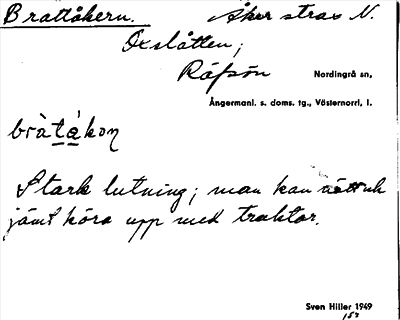 Brattåkern. Åker strax N.
Oxslåtten;
Räfsön Nordingrå sn,
Ångermanl. s. doms. tg., Västernorrl, l.
bràtákon
Stark lutning; man kan nätt och
jämt köra upp med traktor.
Sven Hiller 1949